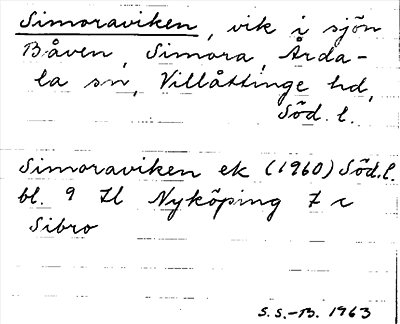 Simoraviken, vik i sjön
Båven, Simora, Årda-
la sn, Villåttinge hd,
Söd. l.
Simoraviken ek (1960) Söd.l.
bl. 9 Nyköping 7 c
Sibro
S.S.-B. 1963